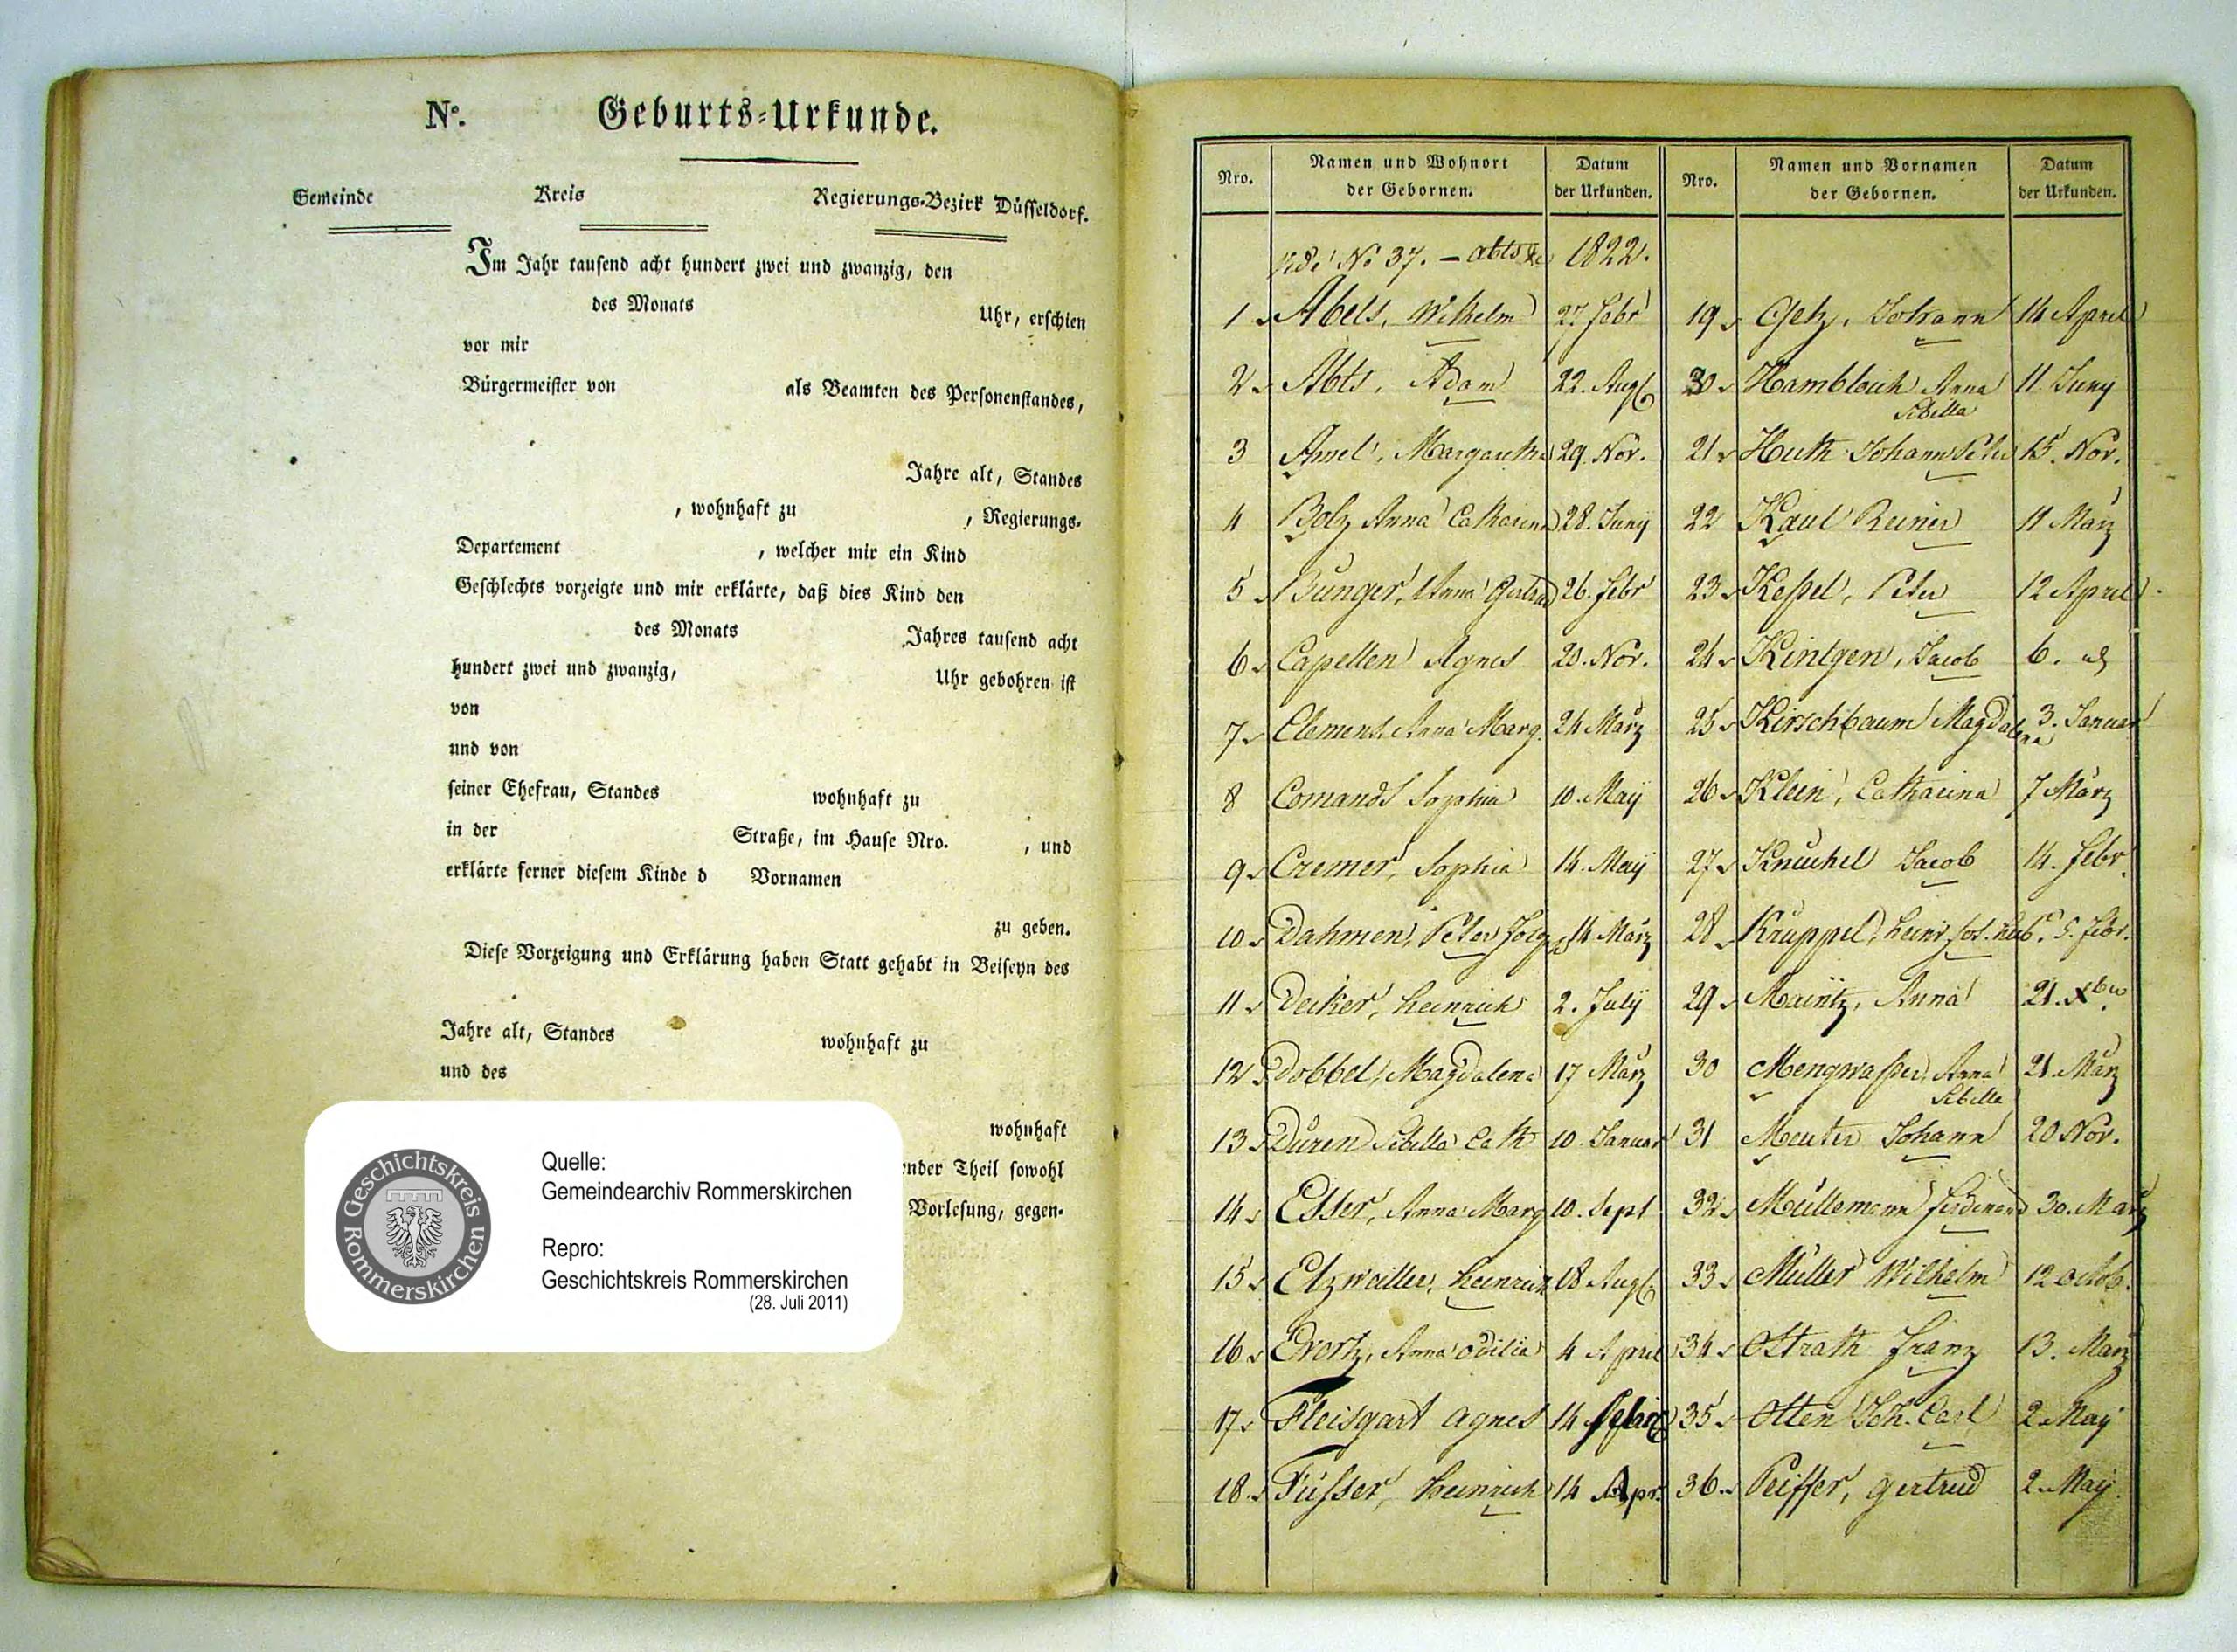 No. Geburts-Urkunde.
Gemeinde Kreis Regierungs-Bezirk Düsseldorf.
Im Jahr tausend acht hundert zwei und zwanzig, den
des Monats Uhr, erschien
vor mir
Bürgermeister von als Beamten des Personenstandes,
Jahre alt, Standes
, wohnhaft zu , Regierungs-
Departement , welcher mir ein Kind
Geschlechts vorzeigte und mir erklärte, daß dies Kind den
des Monats Jahres tausend acht
hundert zwei und zwanzig, Uhr gebohren ist
von
und von
seiner Ehefrau, Standes wohnhaft zu
in der Straße, im Hause Nro. , und
erklärte ferner diesem Kinde d Vornamen
zu geben.
Diese Vorzeigung und Erklärung haben Statt gehabt in Beiseyn des
Jahre alt, Standes wohnhaft zu
und des
wohnhaft
nder Theil sowohl
Vorlesung, gegen-
Geschichtskreis Rommerskirchen
Quelle:
Gemeindearchiv Rommerskirchen
Repro:
Geschichtskreis Rommerskirchen
(28. Juli 2011)
Nro. Namen und Wohnort der Gebornen. Datum der Urkunden.
No 37. – Abts 1822.
1 Abels, Wilhelm 27 Febr
2 Abts, Adam 22. Augt
3 Amel, Margaretha 29. Nov.
4 Bolz Anna Catharina 28. Juny
5 Bünger, Anna Gertrud 26. Febr
6 Capellen Agnes 20. Nov.
7 Clemens Anna Marg. 24 März
8 Comands Sophia 10. May
9 Cremer, Sophia 14. May
10 Dahmen, Peter 14 März
11 Decker, Heinrich 2. July
12 Dobbel, Magdalena 17 März
13 Düren Sibilla Cath 10. Januar
14 Esser, Anna Marg 10. Sept
15 Etzweiller, Heinrich 18 Augt
16 Evertz, Anna Odilia 4 April
17 Fleisgart Agnes 14
18 Füsser, Heinrich 14 Apr.
Nro. Namen und Vornamen der Gebornen. Datum der Urkunden.
19 Getz, Johann 14 April
20 Hambloch Anna Sibilla 11. Juny
21 Huth Johann Peter 15. Nov.
22 Kaul Reiner 11 März
23 Keßel, Peter 12 April
24 Kintgen, Jacob 6.
25 Kirschbaum Magdalena 3. Januar
26 Klein, Catharina 7 März
27 Knuchel Jacob 14. Febr.
28 Krüppel, Heinr. Jos. Hub. 5. Febr.
29 Maintz, Anna 21. Xber
30 Mengwaßer, Anna Sibilla 21. März
31 Meuter Johann 20 Nov.
32 Müllemann Ferdinand 30. März
33 Müller Wilhelm 12 Octob.
34 Ostrath Franz 13. März
35 Otten Joh. Carl 2. May
36 Peiffer, Gertrud 2. May